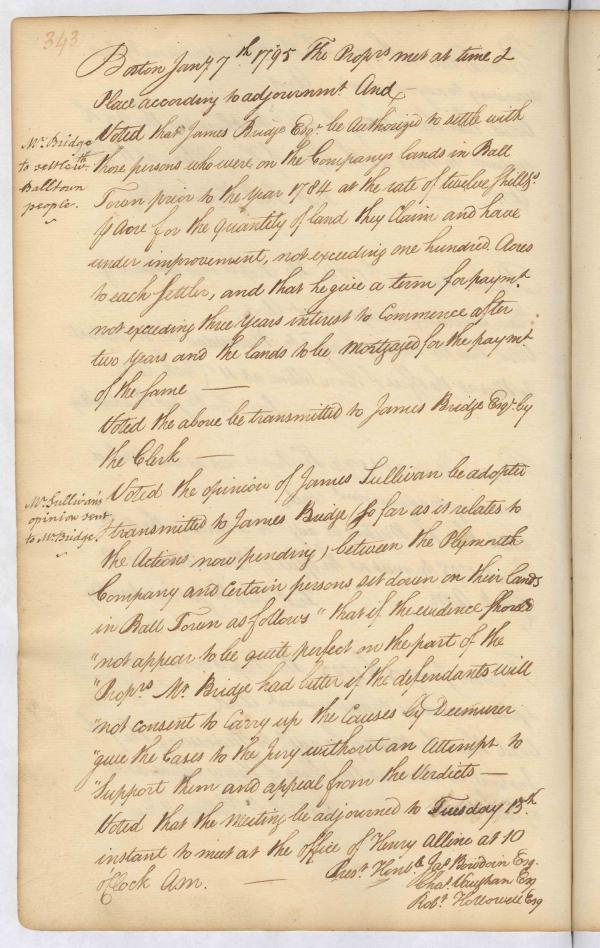 343
Boston Jany 7th 1795 The Proprs met at time &
Place according to adjournmt And
Mr Bridge
to settle wth
Balltown
people.
Voted that James Bridge Esqr. be Authorized to settle with
those persons who were on the Companys lands in Ball
Town prior to the year 1784 at the rate of twelve Shillgs.
⅌ Acre for the quantity of land they Claim and have
under improvement, not exceeding one hundred Acres
to each Settler, and that he give a term for paymt.
not exceeding three years interest to Commence after
two years and the lands to be Mortgaged for the paymt.
of the same —
Voted the above be transmitted to James Bridge Esqr. by
the Clerk —
Mr Sullivan's
opinion sent
to Mr Bridge.
Voted the opinion of James Sullivan be adopted
transmitted to James Bridge (so far as it relates to
the Actions now pending) between the Plymouth
Company and certain persons set down on their lands
in Ball Town as follows "that if the evidence should
"not appear to be quite perfect on the part of the
"Proprs Mr. Bridge had better if the defendants will
"not consent to Carry up the Causes by Deemurer
"give the Cases to the Jury without an Attempt to
"Support them and appeal from the Verdicts —
Voted that the Meeting be adjourned to Tuesday 13th
instant to meet at the office of Henry Alline at 10
o'Clock A.M. —
Prest. Honbl Jas Bowdoin Esq.
Chas. Vaughan Esq
Robt. Hallowell Esq